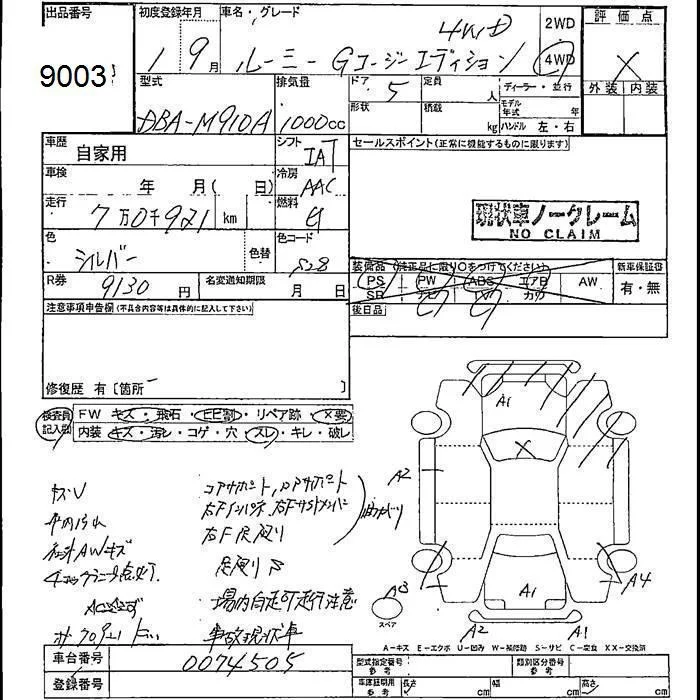 出品番号
9003
初度登録年月
1 9月
車名・グレード
ルーミー Gコージーエディション 4WD
2WD
4WD
評価点
X
外装 内装
型式
DBA-M910A
排気量
1000cc
ドア 5
定員 人
形状
積載 kg
ディーラー・並行
モデル年式 年
ハンドル 左・右
車歴
自家用
シフト
IAT
セールスポイント(正常に機能するものに限ります)
車検
年 月( 日)
冷房
AAC
走行
7万0千921 km
燃料
G
現状車ノークレーム
NO CLAIM
色
シルバー
色替
色コード
S28
装備品(純正品に限り○をつけてください)
PS PW ABS エアB AW
SR ナビ TV カワ
新車保証書
有・無
R券
9130円
名変通知期限
月 日
後日品
注意事項申告欄(不具合内容等は具体的に記入して下さい)
修復歴 有[箇所 ]
検査員記入欄
FW キズ・飛石・ヒビ割・リペア跡・X要
内装 キズ・汚レ・コゲ・穴・スレ・キレ・破レ
コアサポート,
右Fインパネ
右F足廻り
足廻り
AWキズ
場内自走可走行注意
事故現状車
A1
X
A2
A3
スペア
A1
A4
A2
A1
A-キズ E-エクボ U-凹み W-補修跡 S-サビ C-腐食 XX-交換済
車台番号
0074505
登録番号
型式指定番号
参考
類別区分番号
参考
車庫証明用
参考
長さ cm
幅 cm
高さ cm